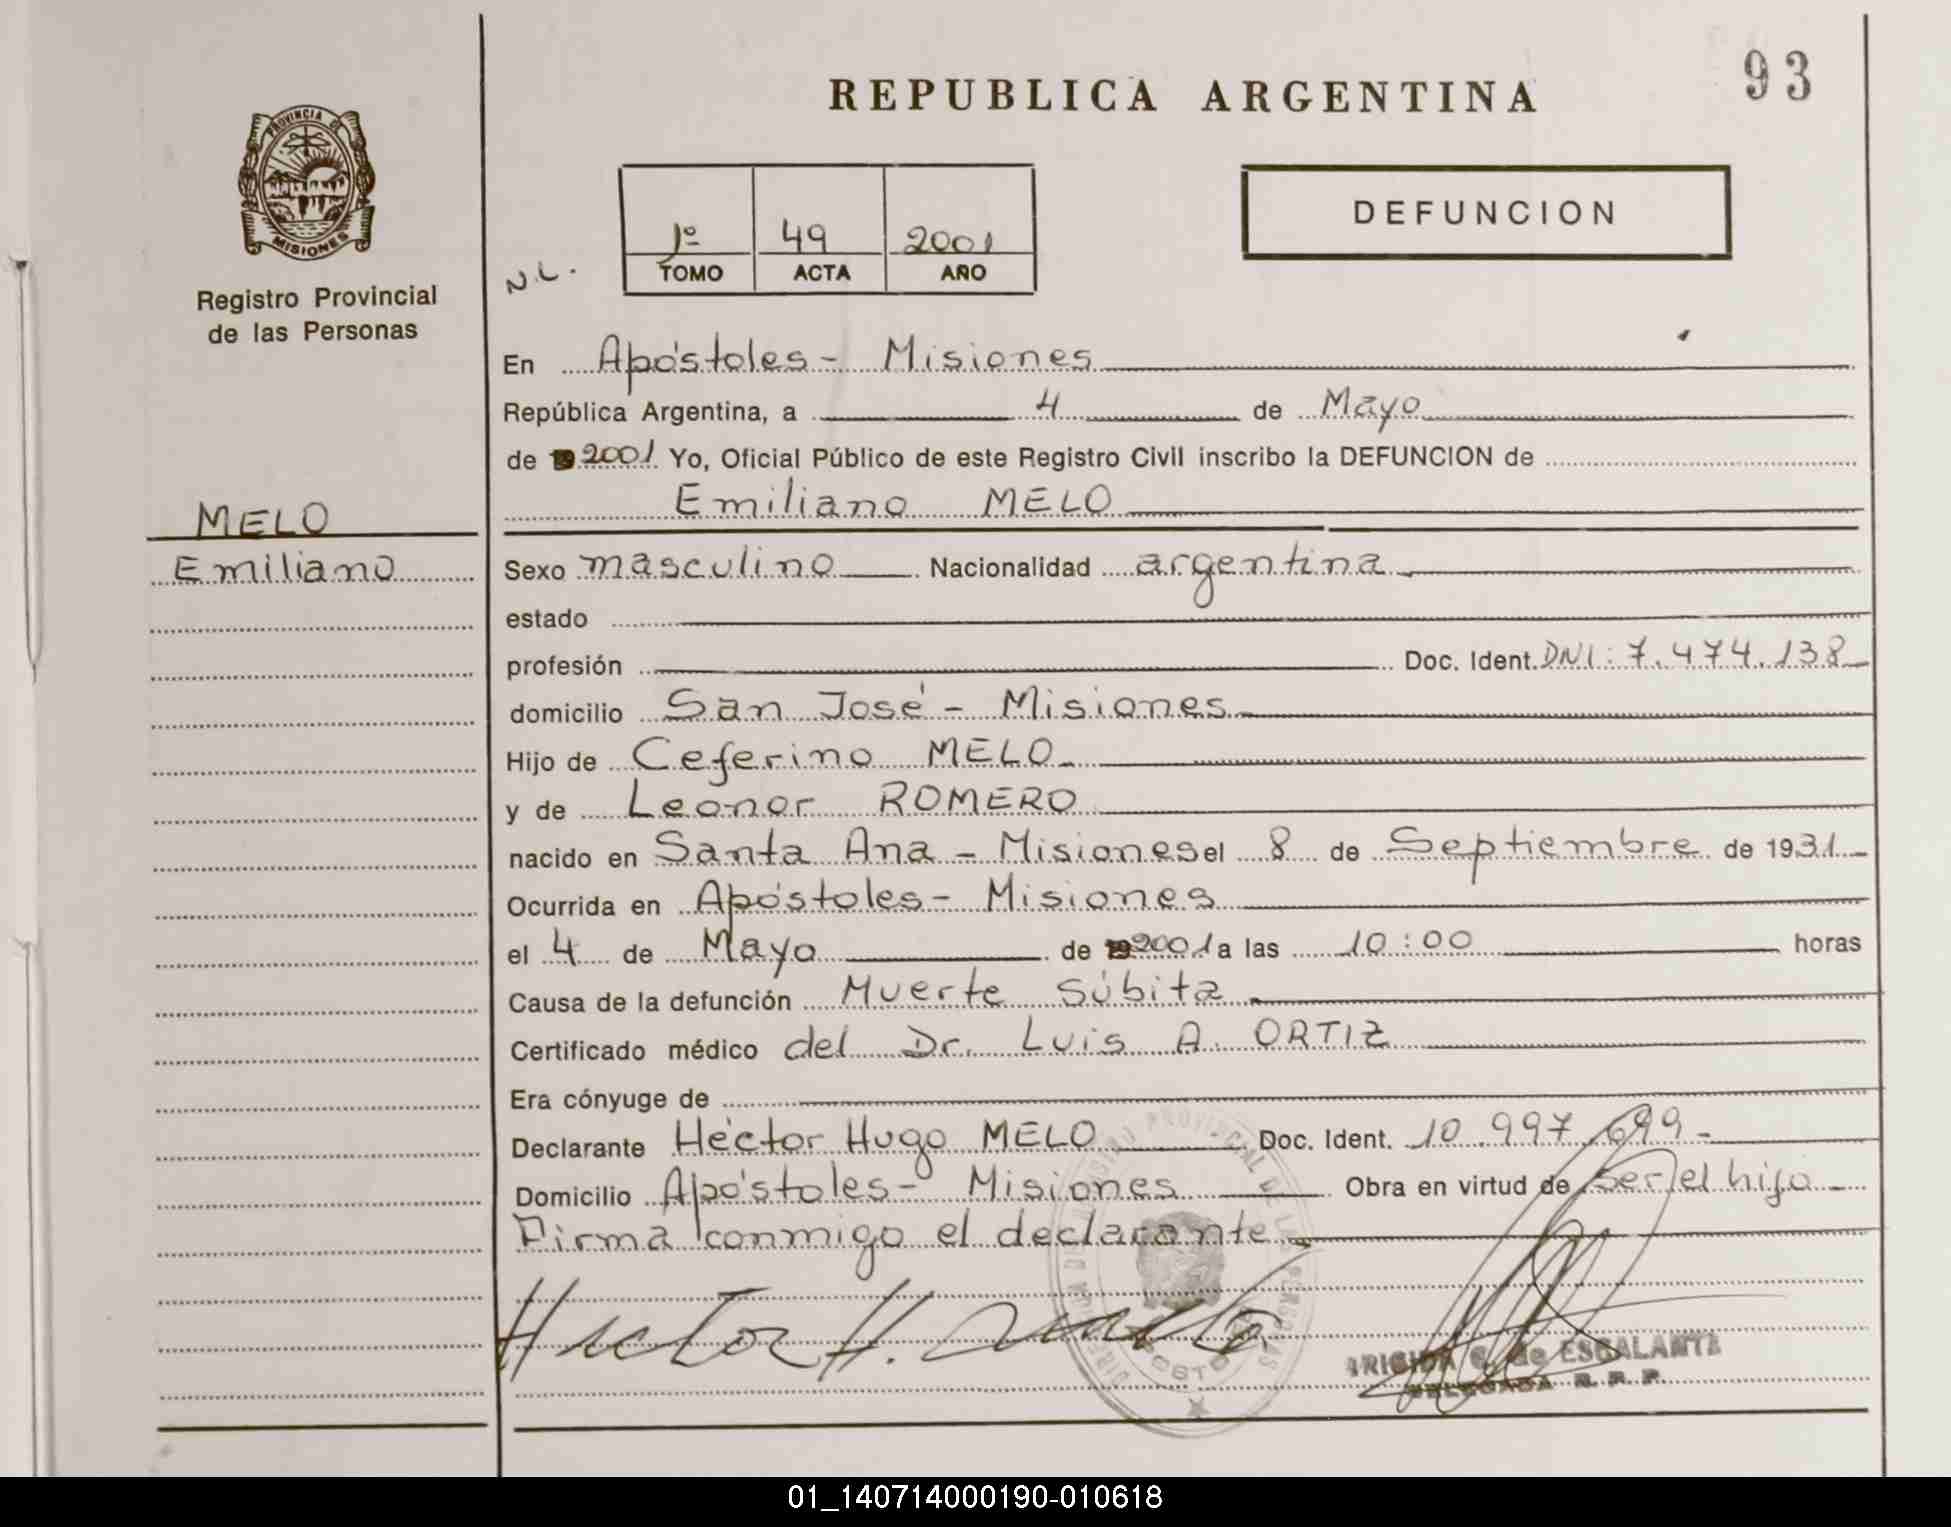 93
REPUBLICA ARGENTINA
PROVINCIA DE
MISIONES
Registro Provincial
de las Personas
DEFUNCION
1º 49 2001
TOMO ACTA AÑO
N.L.
En Apóstoles - Misiones
República Argentina, a 4 de Mayo
de 2001 Yo, Oficial Público de este Registro Civil inscribo la DEFUNCION de
Emiliano MELO
MELO
Emiliano
Sexo masculino Nacionalidad argentina
estado
profesión Doc. Ident. DNI: 7.474.138
domicilio San José - Misiones
Hijo de Ceferino MELO
y de Leonor ROMERO
nacido en Santa Ana - Misiones el 8 de Septiembre de 1931
Ocurrida en Apóstoles - Misiones
el 4 de Mayo de 2001 a las 10:00 horas
Causa de la defunción Muerte Súbita
Certificado médico del Dr. Luis A. ORTIZ
Era cónyuge de
Declarante Héctor Hugo MELO Doc. Ident. 10.997.699
Domicilio Apóstoles - Misiones Obra en virtud de ser el hijo
Firma conmigo el declarante
Hector H. Melo
G. de ESCALANTE
DELEGADA R. P. P.
01_140714000190-010618